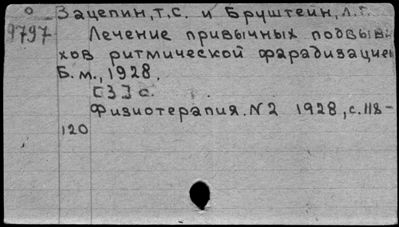 Зацепин, Т.С. и Бруштейн, Л.Г.
9797
Лечение привычных подвыви-
хов ритмической фарадизацией
Б.м., 1928.
[3] с.
Физиотерапия. N2 1928, с. 118-
120